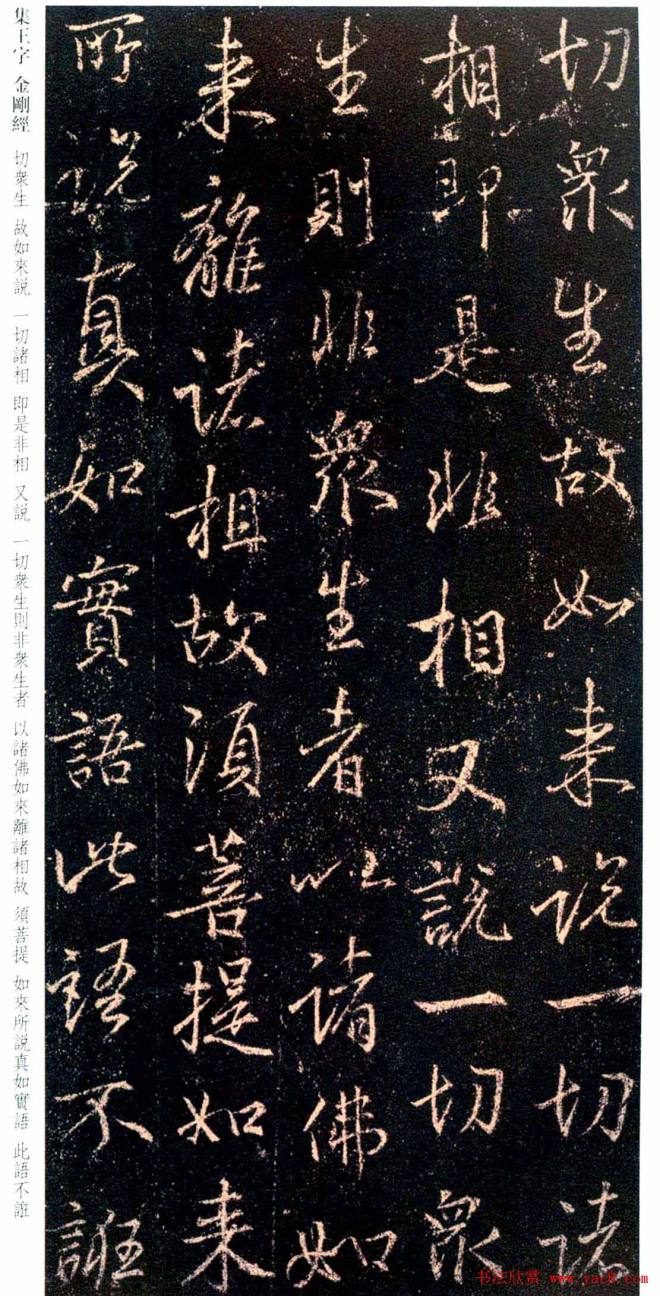 切衆生故如来說一切諸
相即是非相又說一切衆
生則非衆生者以諸佛如
来離諸相故須菩提如来
所說真如實語此語不誑
集王字 金剛經 切衆生 故如來説 一切諸相 即是非相 又説 一切衆生則非衆生者 以諸佛如來離諸相故 須菩提 如來所説真如實語 此語不誑
书法欣赏 www.yac8.com